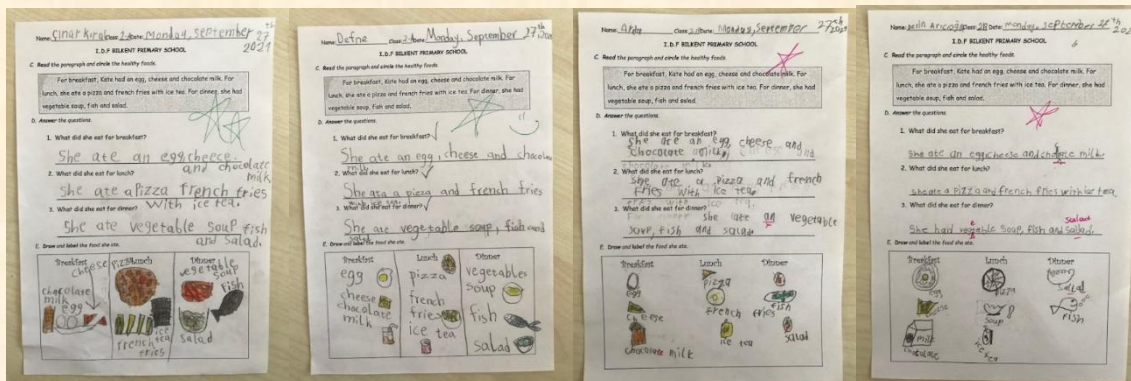 Name: Çınar Kıral Class: 2-A Date: Monday, September 27th 2021
I.D.F BILKENT PRIMARY SCHOOL
C. Read the paragraph and circle the healthy foods.
For breakfast, Kate had an egg, cheese and chocolate milk. For
lunch, she ate a pizza and french fries with ice tea. For dinner, she had
vegetable soup, fish and salad.
D. Answer the questions.
1. What did she eat for breakfast?
She ate an egg, cheece.
and chocolate
milk
2. What did she eat for lunch?
She ate a Pizza french fries
with ice tea.
3. What did she eat for dinner?
She ate vegetable soup fish
and salad.
E. Draw and label the food she ate.
Breakfast
cheese
chocolate
milk
egg
Lunch
pizza
ice
tea
french
fries
Dinner
vegetable
soup
fish
salad
Name: Defne Class: 2-A Date: Monday, September 27th
I.D.F BILKENT PRIMARY SCHOOL
C. Read the paragraph and circle the healthy foods.
For breakfast, Kate had an egg, cheese and chocolate milk. For
lunch, she ate a pizza and french fries with ice tea. For dinner, she had
vegetable soup, fish and salad.
D. Answer the questions.
1. What did she eat for breakfast?
She ate an egg, cheese and chocolate
milk
2. What did she eat for lunch?
She ate a pizza and french fries
with ice tea.
3. What did she eat for dinner?
She ate vegetable soup, fish and
salad
E. Draw and label the food she ate.
Breakfast
egg
cheese
chocolate
milk
Lunch
pizza
french
fries
ice tea
Dinner
vegetables
soup
fish
salad
Name: Arda Class: Date: Monday, September 27th 2021
I.D.F BILKENT PRIMARY SCHOOL
C. Read the paragraph and circle the healthy foods.
For breakfast, Kate had an egg, cheese and chocolate milk. For
lunch, she ate a pizza and french fries with ice tea. For dinner, she had
vegetable soup, fish and salad.
D. Answer the questions.
1. What did she eat for breakfast?
She ate an egg, cheese and
chocolate milk
2. What did she eat for lunch?
She ate a pizza and french
fries with ice tea.
3. What did she eat for dinner?
she ate an vegetable
soup, fish and salad
E. Draw and label the food she ate.
Breakfast
egg
cheese
chocolate milk
Lunch
pizza
french fries
ice tea
Dinner
fish
salad
Name: Class: 2B Date: monday, September
I.D.F BILKENT PRIMARY SCHOOL
C. Read the paragraph and circle the healthy foods.
For breakfast, Kate had an egg, cheese and chocolate milk. For
lunch, she ate a pizza and french fries with ice tea. For dinner, she had
vegetable soup, fish and salad.
D. Answer the questions.
1. What did she eat for breakfast?
She ate an egg, cheese and milk.
2. What did she eat for lunch?
she ate a pizza and french fries with ice tea.
3. What did she eat for dinner?
She had soup, fish and
E. Draw and label the food she ate.
Breakfast
egg
cheese
milk
chocolate
Lunch
pizza
soup
ice tea
Dinner
salad
fish